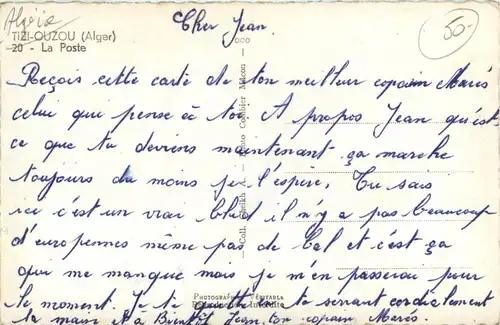 Algérie
TIZI-OUZOU (Alger)
20 - La Poste
50-
Cher Jean
Reçois cette carte de ton meilleur copain Marés
celui qui pense à toi. A propos Jean qu'est
ce que tu deviens maintenant ça marche
toujours du moins je l'espère. Tu sais
ici c'est un vrai bled il n'y a pas beaucoup
d'europennes même pas de bal et c'est ça
qui me manque mais je m'en passerai pour
le moment. Je te quitte en te serrant cordialement
la main et à Bientôt Jean. ton copain Marés.
Coll. Photo Combier Mâcon
PHOTOGRAPHIE VÉRITABLE